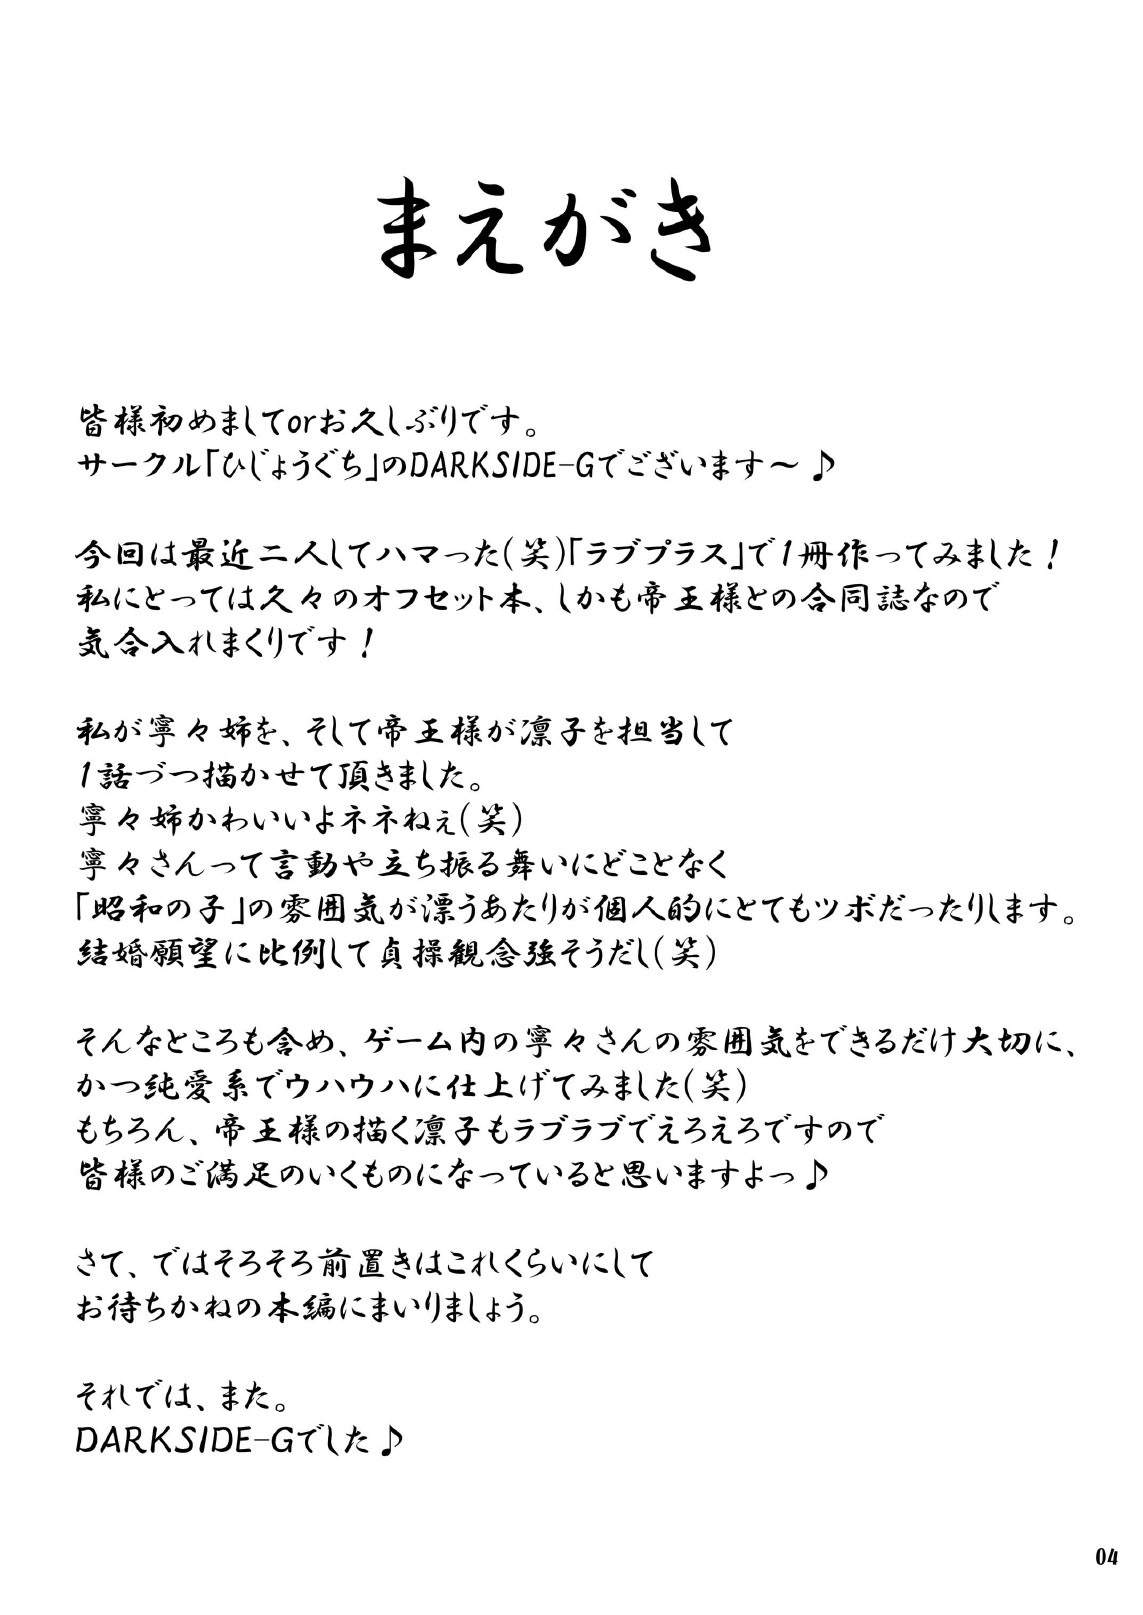 まえがき
皆様初めましてorお久しぶりです。
サークル「ひじょうぐち」のDARKSIDE-Gでございます～♪
今回は最近二人してハマった(笑)「ラブプラス」で1冊作ってみました！
私にとっては久々のオフセット本、しかも帝王様との合同誌なので
気合入れまくりです！
私が寧々姉を、そして帝王様が凛子を担当して
1話づつ描かせて頂きました。
寧々姉かわいいよネネねぇ(笑)
寧々さんって言動や立ち振る舞いにどことなく
「昭和の子」の雰囲気が漂うあたりが個人的にとてもツボだったりします。
結婚願望に比例して貞操観念強そうだし(笑)
そんなところも含め、ゲーム内の寧々さんの雰囲気をできるだけ大切に、
かつ純愛系でウハウハに仕上げてみました(笑)
もちろん、帝王様の描く凛子もラブラブでえろえろですので
皆様のご満足のいくものになっていると思いますよっ♪
さて、ではそろそろ前置きはこれくらいにして
お待ちかねの本編にまいりましょう。
それでは、また。
DARKSIDE-Gでした♪
04